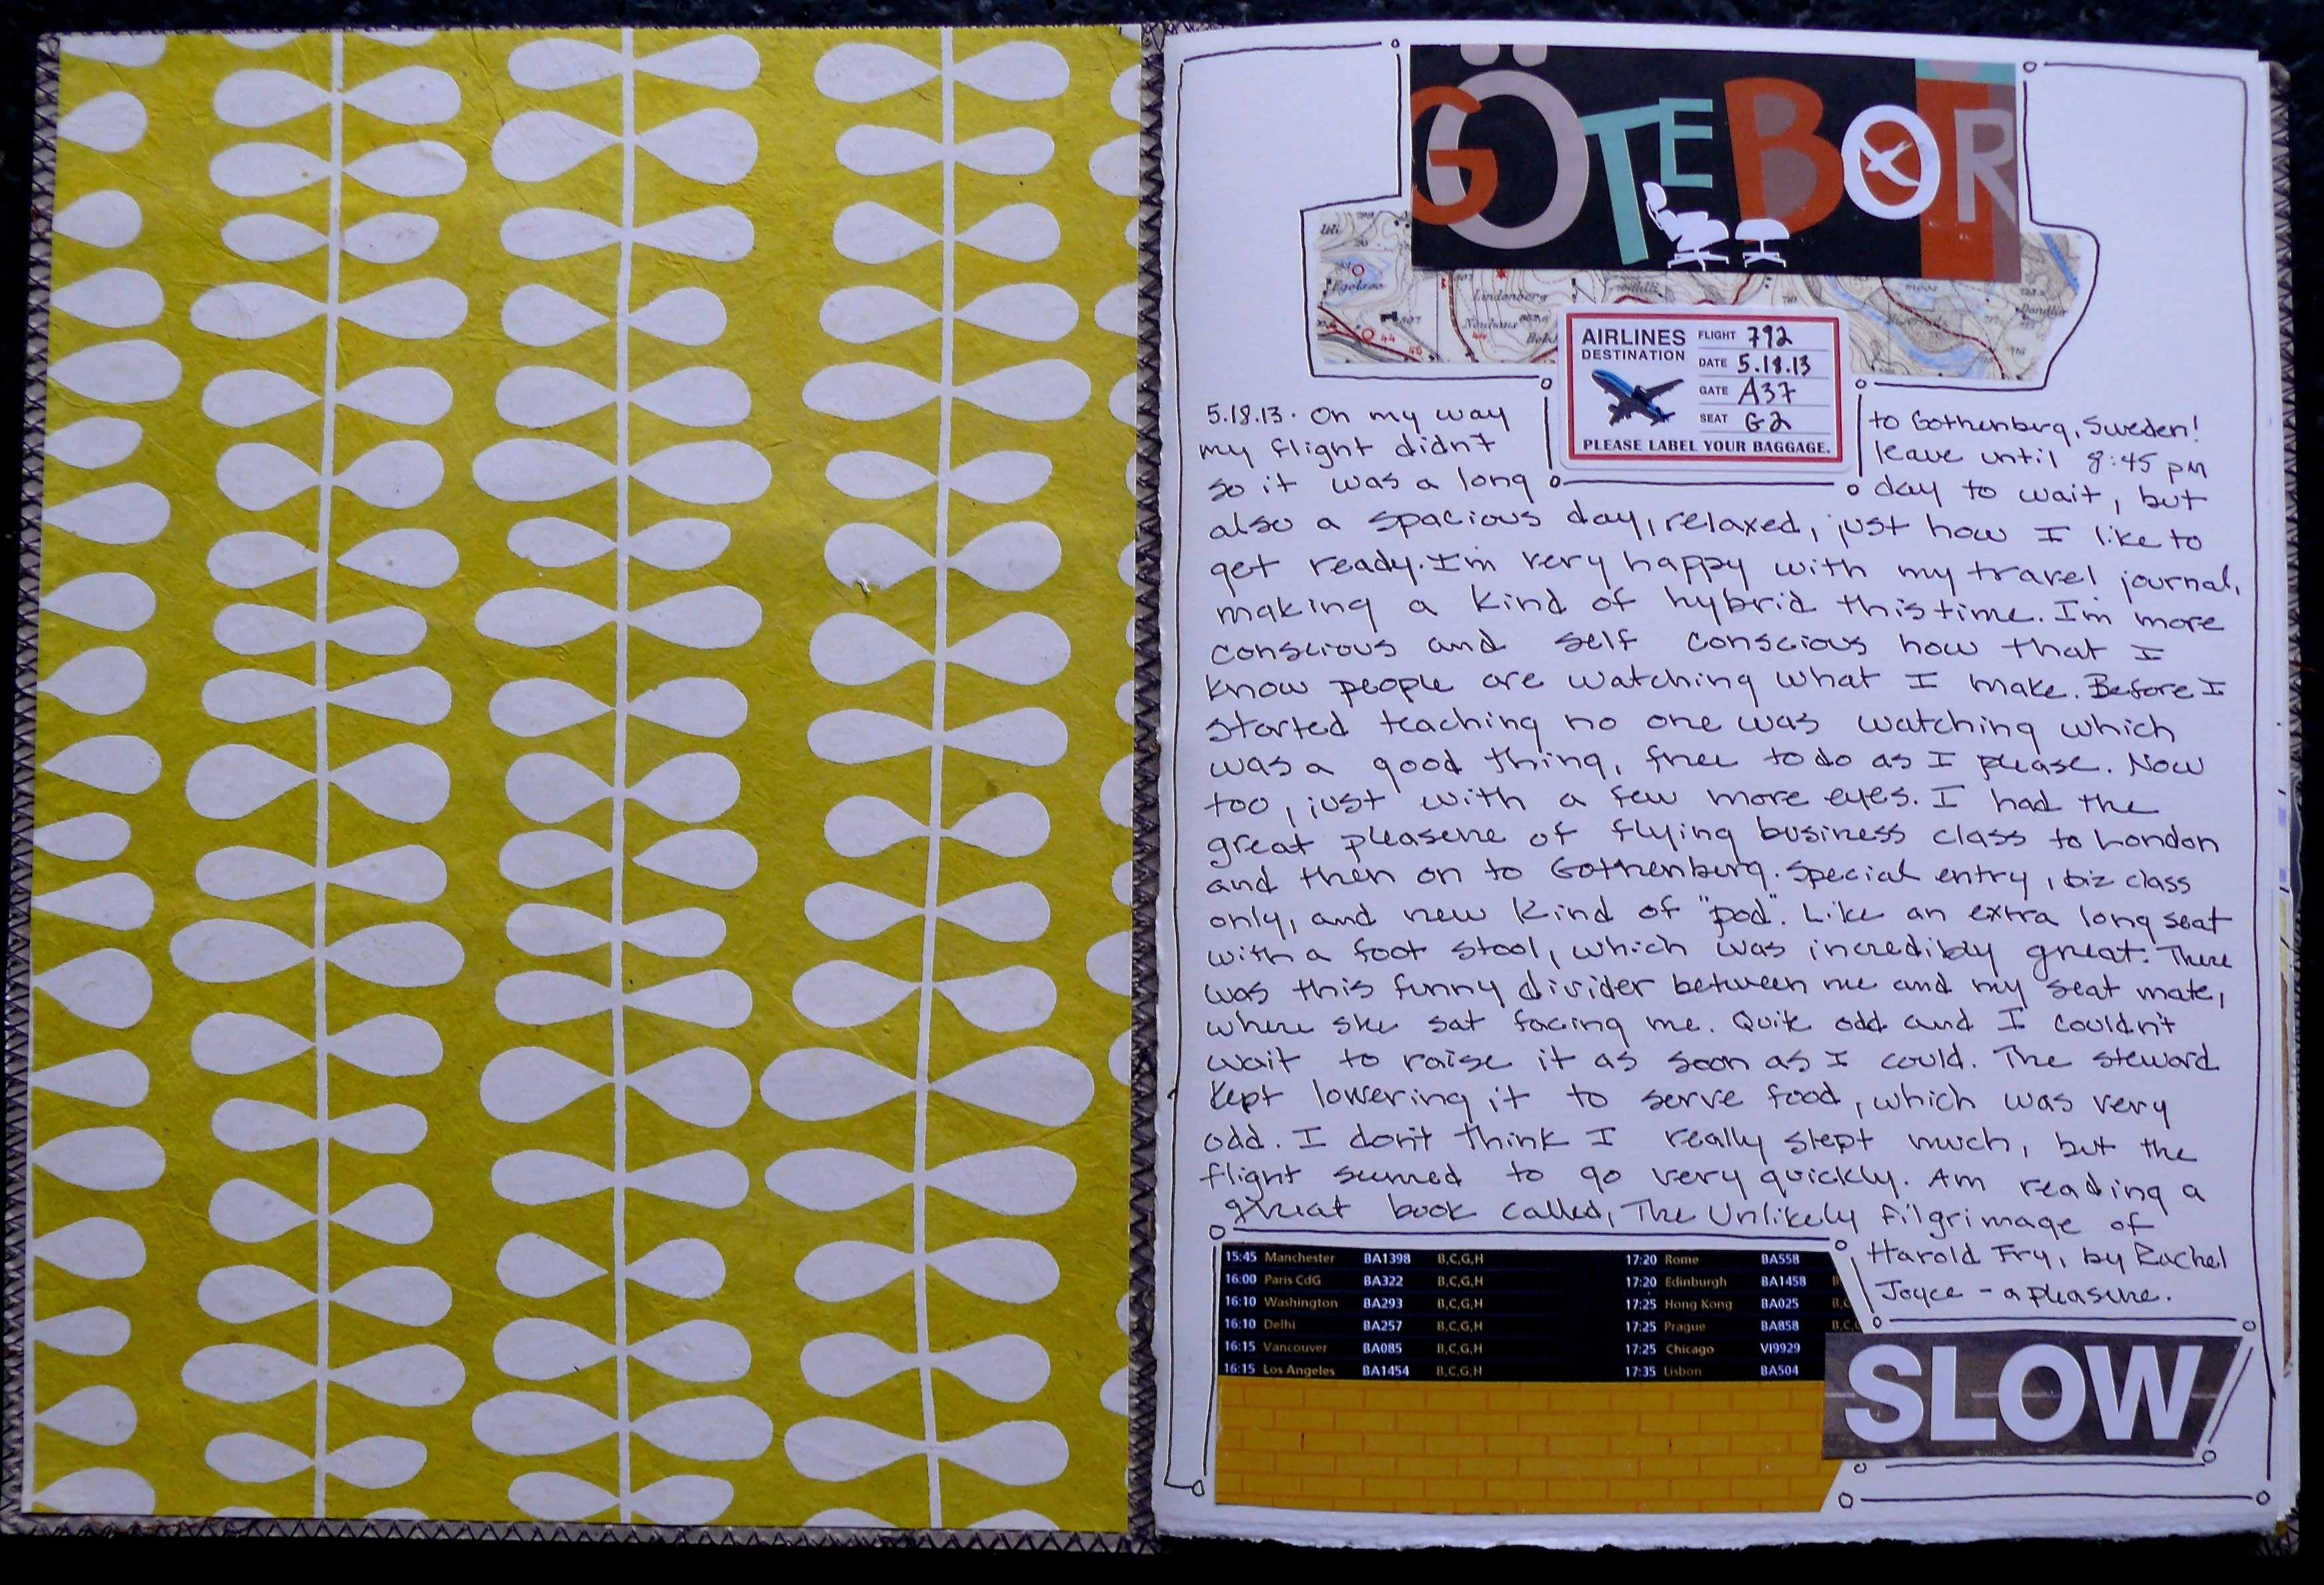 GÖTEBOR
AIRLINES
DESTINATION
FLIGHT 792
DATE 5.18.13
GATE A37
SEAT G2
PLEASE LABEL YOUR BAGGAGE.
Egelsee
Lindenberg
Neuhaus
5.18.13. On my way to Gothenberg, Sweden!
my flight didn't leave until 8:45 pm
so it was a long day to wait, but
also a spacious day, relaxed, just how I like to
get ready. I'm very happy with my travel journal,
making a kind of hybrid this time. I'm more
conscious and self conscious now that I
know people are watching what I make. Before I
started teaching no one was watching which
was a good thing, free to do as I please. Now
too, just with a few more eyes. I had the
great pleasure of flying business class to London
and then on to Gothenburg. Special entry, biz class
only, and new kind of "pod". Like an extra long seat
with a foot stool, which was incredibly great. There
was this funny divider between me and my seat mate,
where she sat facing me. Quite odd and I couldn't
wait to raise it as soon as I could. The steward
kept lowering it to serve food, which was very
odd. I don't think I really slept much, but the
flight seemed to go very quickly. Am reading a
great book called, The Unlikely Pilgrimage of
Harold Fry, by Rachel
Joyce - a pleasure.
15:45 Manchester BA1398 B,C,G,H 17:20 Rome BA558
16:00 Paris CdG BA322 B,C,G,H 17:20 Edinburgh BA1458 B
16:10 Washington BA293 B,C,G,H 17:25 Hong Kong BA025 B,C
16:10 Delhi BA257 B,C,G,H 17:25 Prague BA858 B,C,G
16:15 Vancouver BA085 B,C,G,H 17:25 Chicago VI9929
16:15 Los Angeles BA1454 B,C,G,H 17:35 Lisbon BA504
SLOW